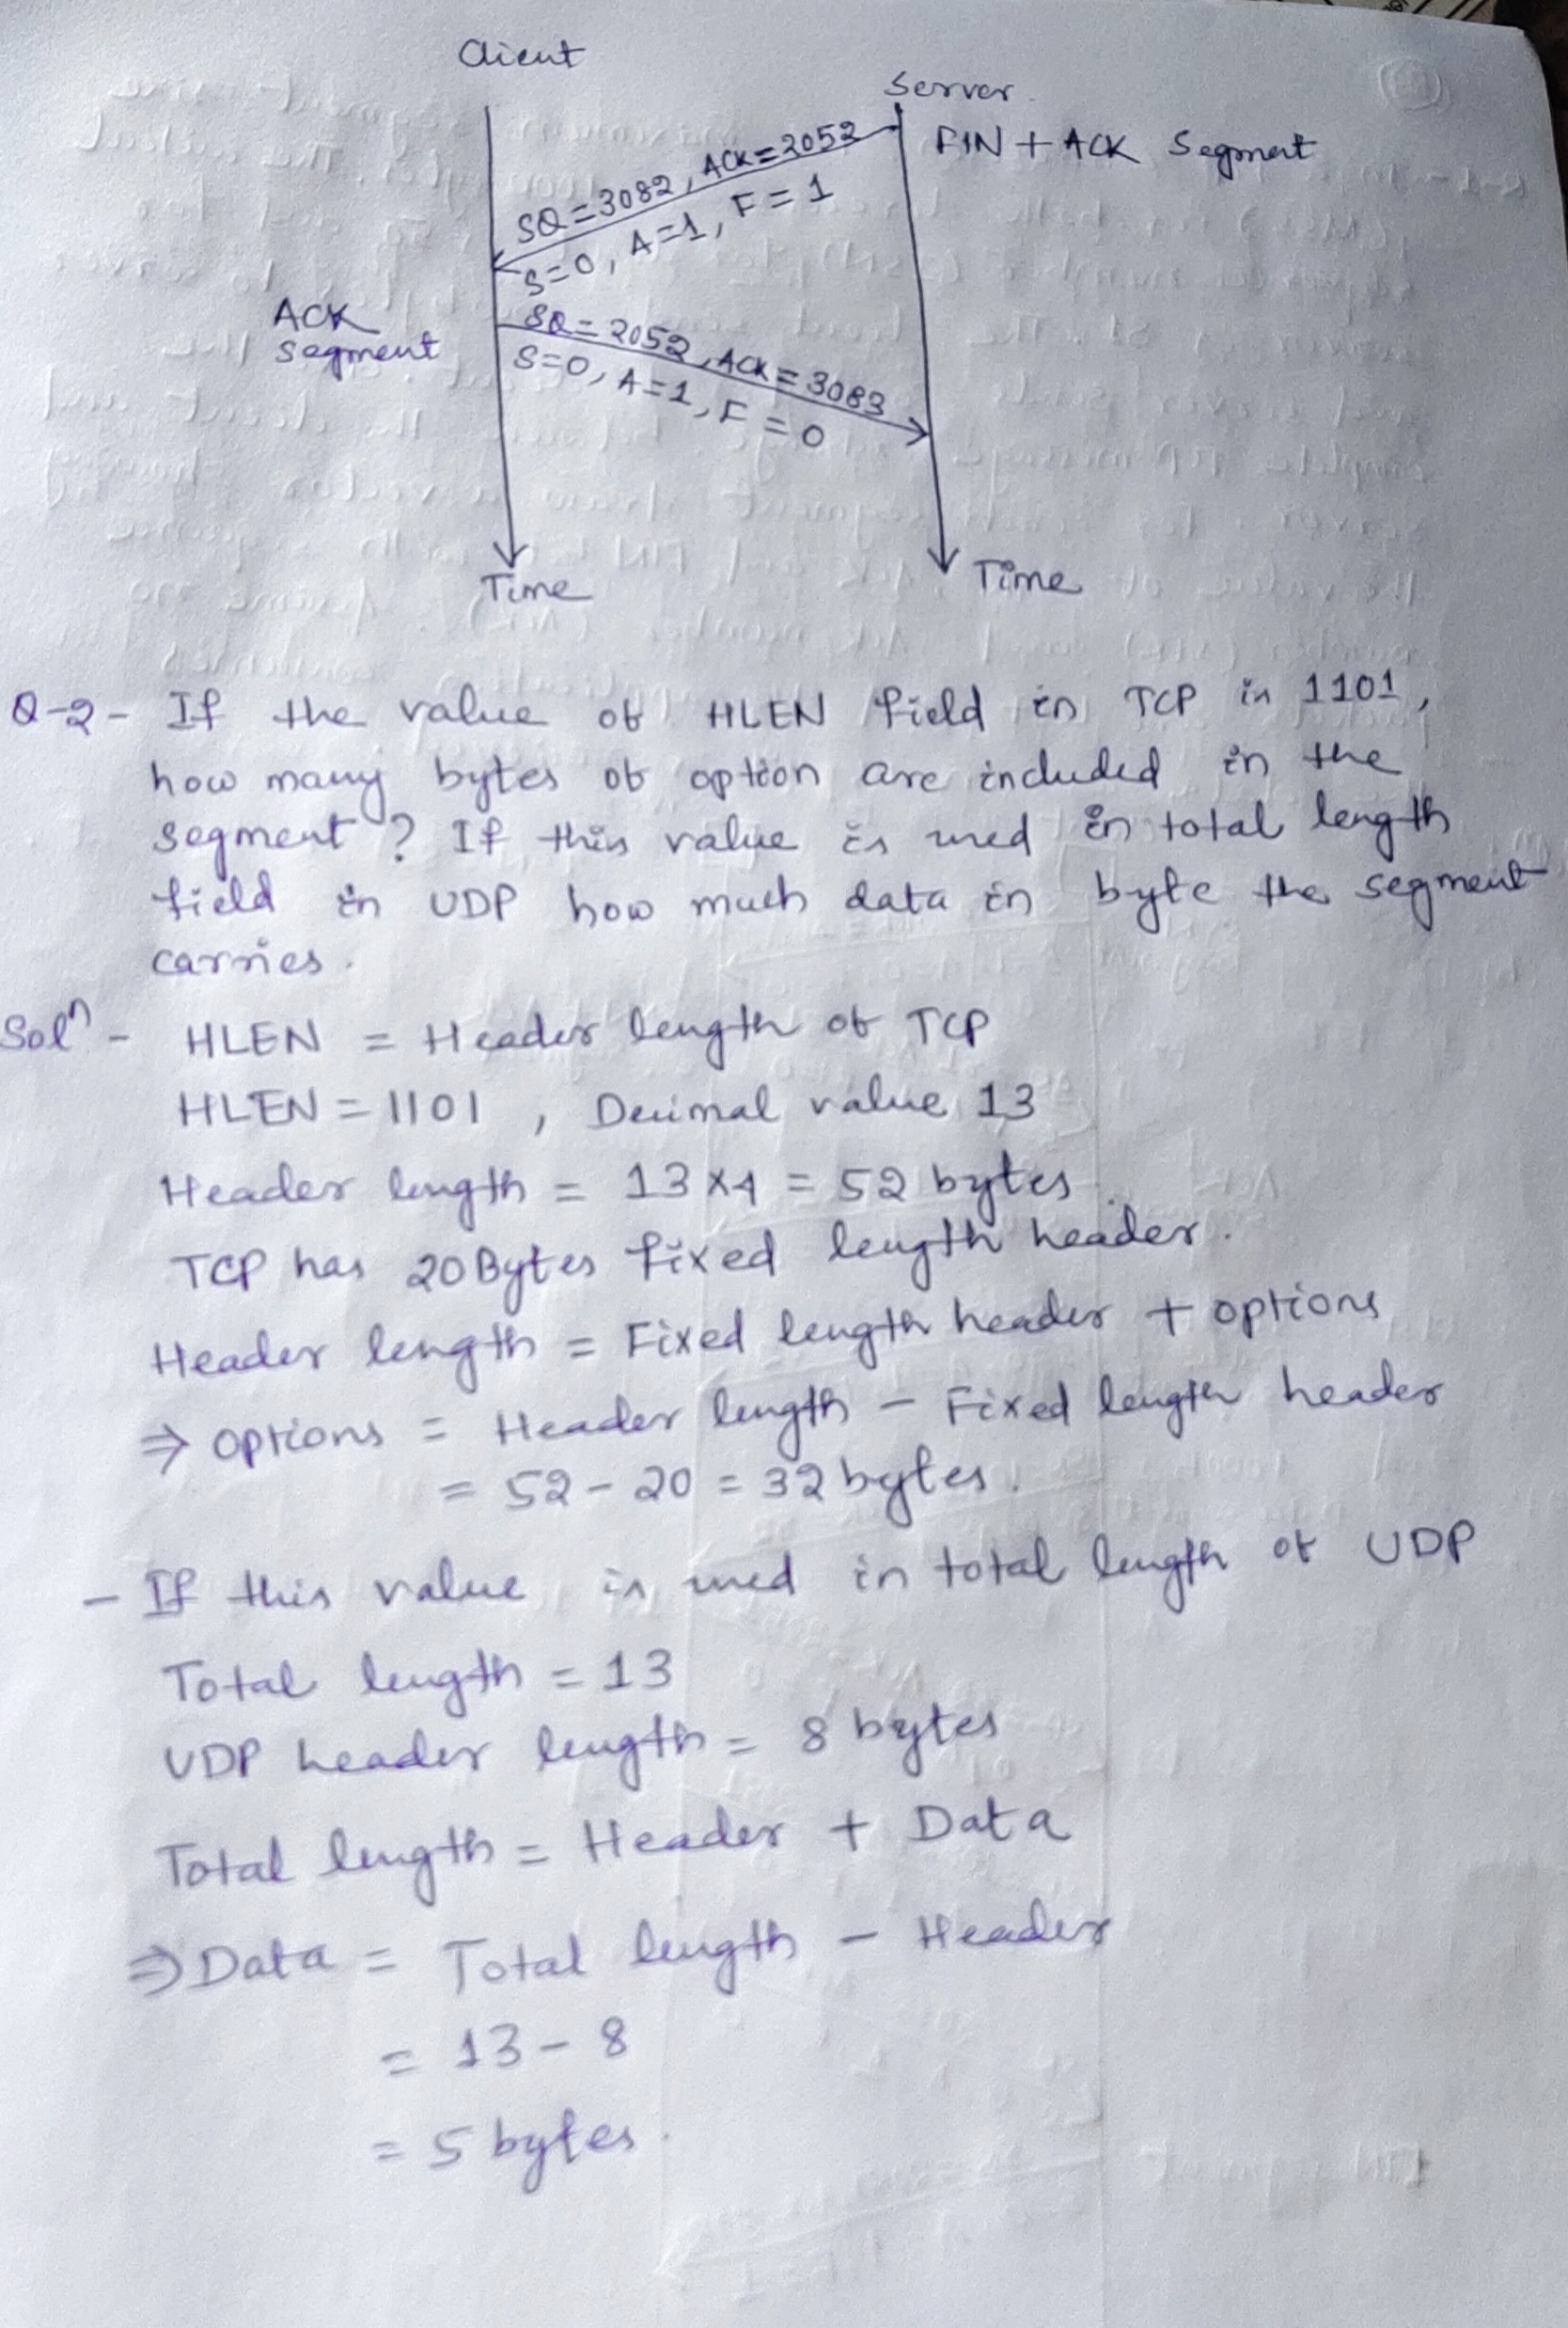 Client
Server
SQ=3082, ACK=2052
FIN + ACK Segment
S=0, A=1, F=1
ACK
segment
SQ=2052, ACK=3083
S=0, A=1, F=0
Time
Time
Q-2- If the value of HLEN field in TCP is 1101,
how many bytes of option are included in the
segment? If this value is used in total length
field in UDP how much data in byte the segment
carries.
Solⁿ - HLEN = Header length of TCP
HLEN = 1101, Decimal value 13
Header length = 13 x 4 = 52 bytes
TCP has 20Bytes fixed length header.
Header length = Fixed length header + options
⇒ options = Header length - Fixed length header
= 52 - 20 = 32 bytes.
- If this value is used in total length of UDP
Total length = 13
UDP header length = 8 bytes
Total length = Header + Data
⇒ Data = Total length - Header
= 13 - 8
= 5 bytes.